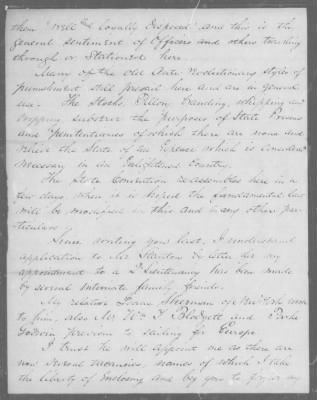 them "well and Loyally Disposed" and this is the
general sentiment of Officers and others traveling
through or Stationed here.
Many of the Old Ante Revolutionary styles of
punishment still prevail here and are in general
use. The Stocks, Pillory Branding, whipping and
cropping, subserve the purposes of State Prisons
and Penitentiaries of which there are none and
which the State of an Expense which is considered
necessary in an Enlightened Country.
The State Convention reassembles here in a
few days, when it is hoped the fundamental law
will be modified in this and many other par-
ticulars.
Since writing you last, I understand
application to Mr Stanton by letter for my
appointment to a 2d Lieutenancy has been made
by several intimate family friends.
My relation Isaac Sherman of New York wrote
to him, also Mr Wm T Blodgett and Parke
Godwin previous to sailing for Europe
I trust he will appoint me as there are
now several vacancies, names of which I take
the liberty of enclosing and beg you to my